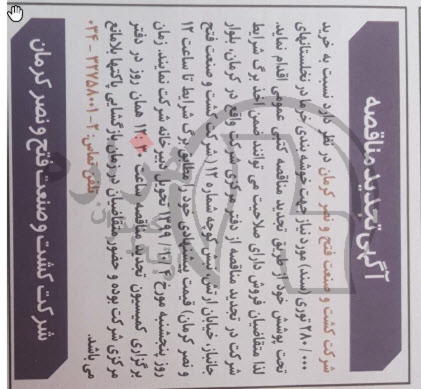 آگهی تجدید مناقصه
شرکت کشت و صنعت فتح و نصر کرمان در نظر دارد نسبت به خرید
۲۸۰/۰۰۰ توری (سند) مورد نیاز جهت خوشه بندی خرما در نخلستانهای
تحت پوشش خود از طریق تجدید مناقصه کتبی عمومی اقدام نماید.
لذا متقاضیان فروش دارای صلاحیت می توانند ضمن اخذ برگ شرایط
شرکت در تجدید مناقصه از دفتر مرکزی شرکت واقع در کرمان، بلوار
جانباز، خیابان ارتش، نبش کوچه شماره ۱۲ (شرکت کشت و صنعت فتح
و نصر کرمان) قیمت پیشنهادی خود را مطابق برگ شرایط تا ساعت ۱۲
روز پنجشنبه مورخ ۱۳۹۹/۱۰/۴ تحویل دبیرخانه شرکت نمایند. زمان
برگزاری کمیسیون تجدید مناقصه ساعت ۱۲:۳۰ همان روز در دفتر
مرکزی شرکت بوده و حضور متقاضیان در زمان بازگشایی پاکتها بلامانع
می باشد. تلفن تماس: ۲-۳۲۷۵۸۰۰۱ - ۰۳۴
شرکت کشت و صنعت فتح و نصر کرمان